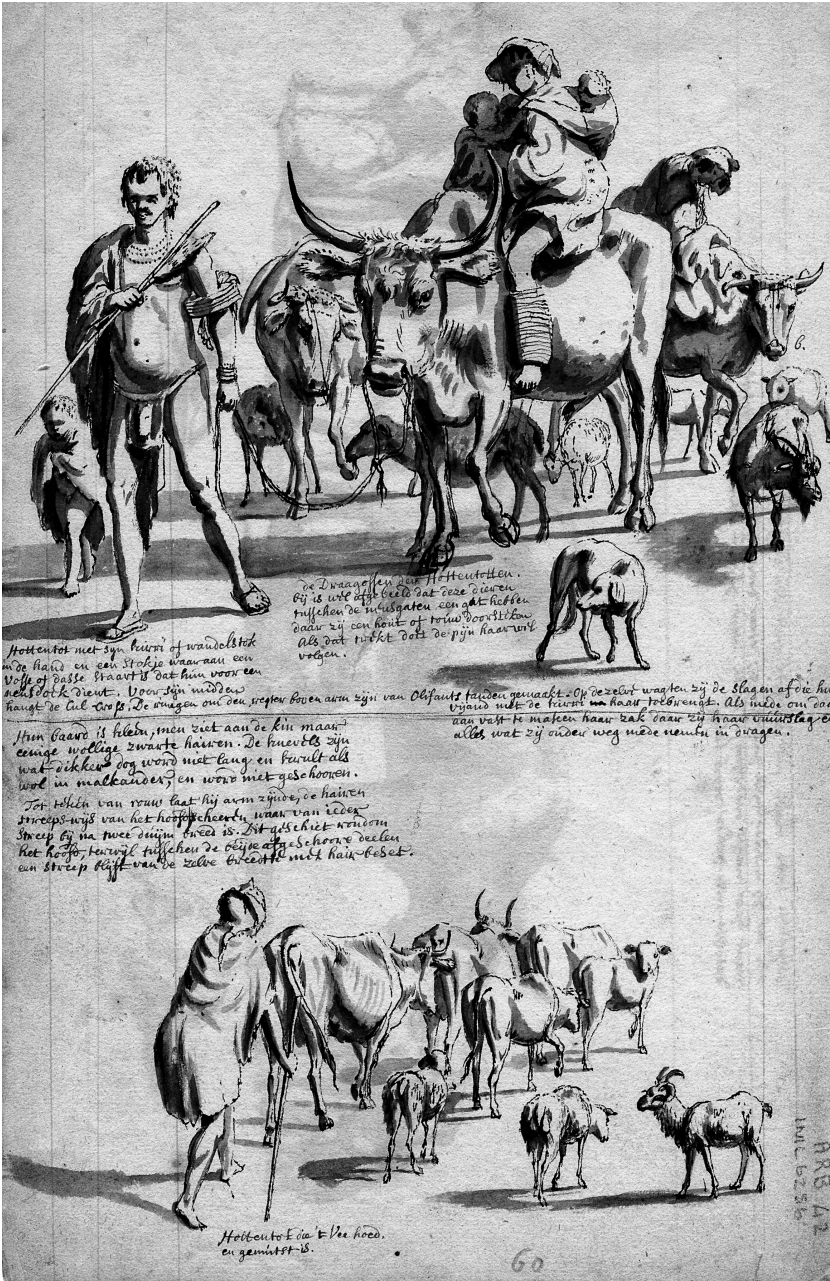 b.
de Draagossen der Hottentotten.
bij is wel afgebeeld dat deze dieren
tusschen de neusgaten een gat hebben
daar zij een hout of touw doorsteken
Als dat trekt doet de pijn haar wel
volgen.
Hottentot met syn kirri of wandelstok
in de hand en een stokje waaraan een
Vosse of dasse staart is dat him voor een
neusdoek dient. Voor syn midden
hangt de Cul Cross, De ringen om den regter boven arm zijn van Olifants tanden gemaakt. Op dezelve wagten zij de slagen af die
vijand met de kirri haar toebrengt. Als mede om
aan vast te maken haar zak daar zij haar vuurslag
alles wat zij onder weg mede nemen in dragen.
Hun baard is klein, men ziet aan de kin maar
eenige wollige zwarte hairen. De knevels zijn
wat dikker dog word niet lang en krult als
wol in malkander, en word niet geschooren.
Tot teken van rouw laat hij arm zijnde, de hairen
streeps-wijs van het hoofd scheeren waar van ieder
streep bij na twee duijm breed is. Dit geschiet rondom
het hoofd, terwijl tusschen de beijde afgeschoore deelen
een streep blijft van de zelve breedte met hair beset.
Hottentot die 't Vee hoed.
en gemutst is.
60